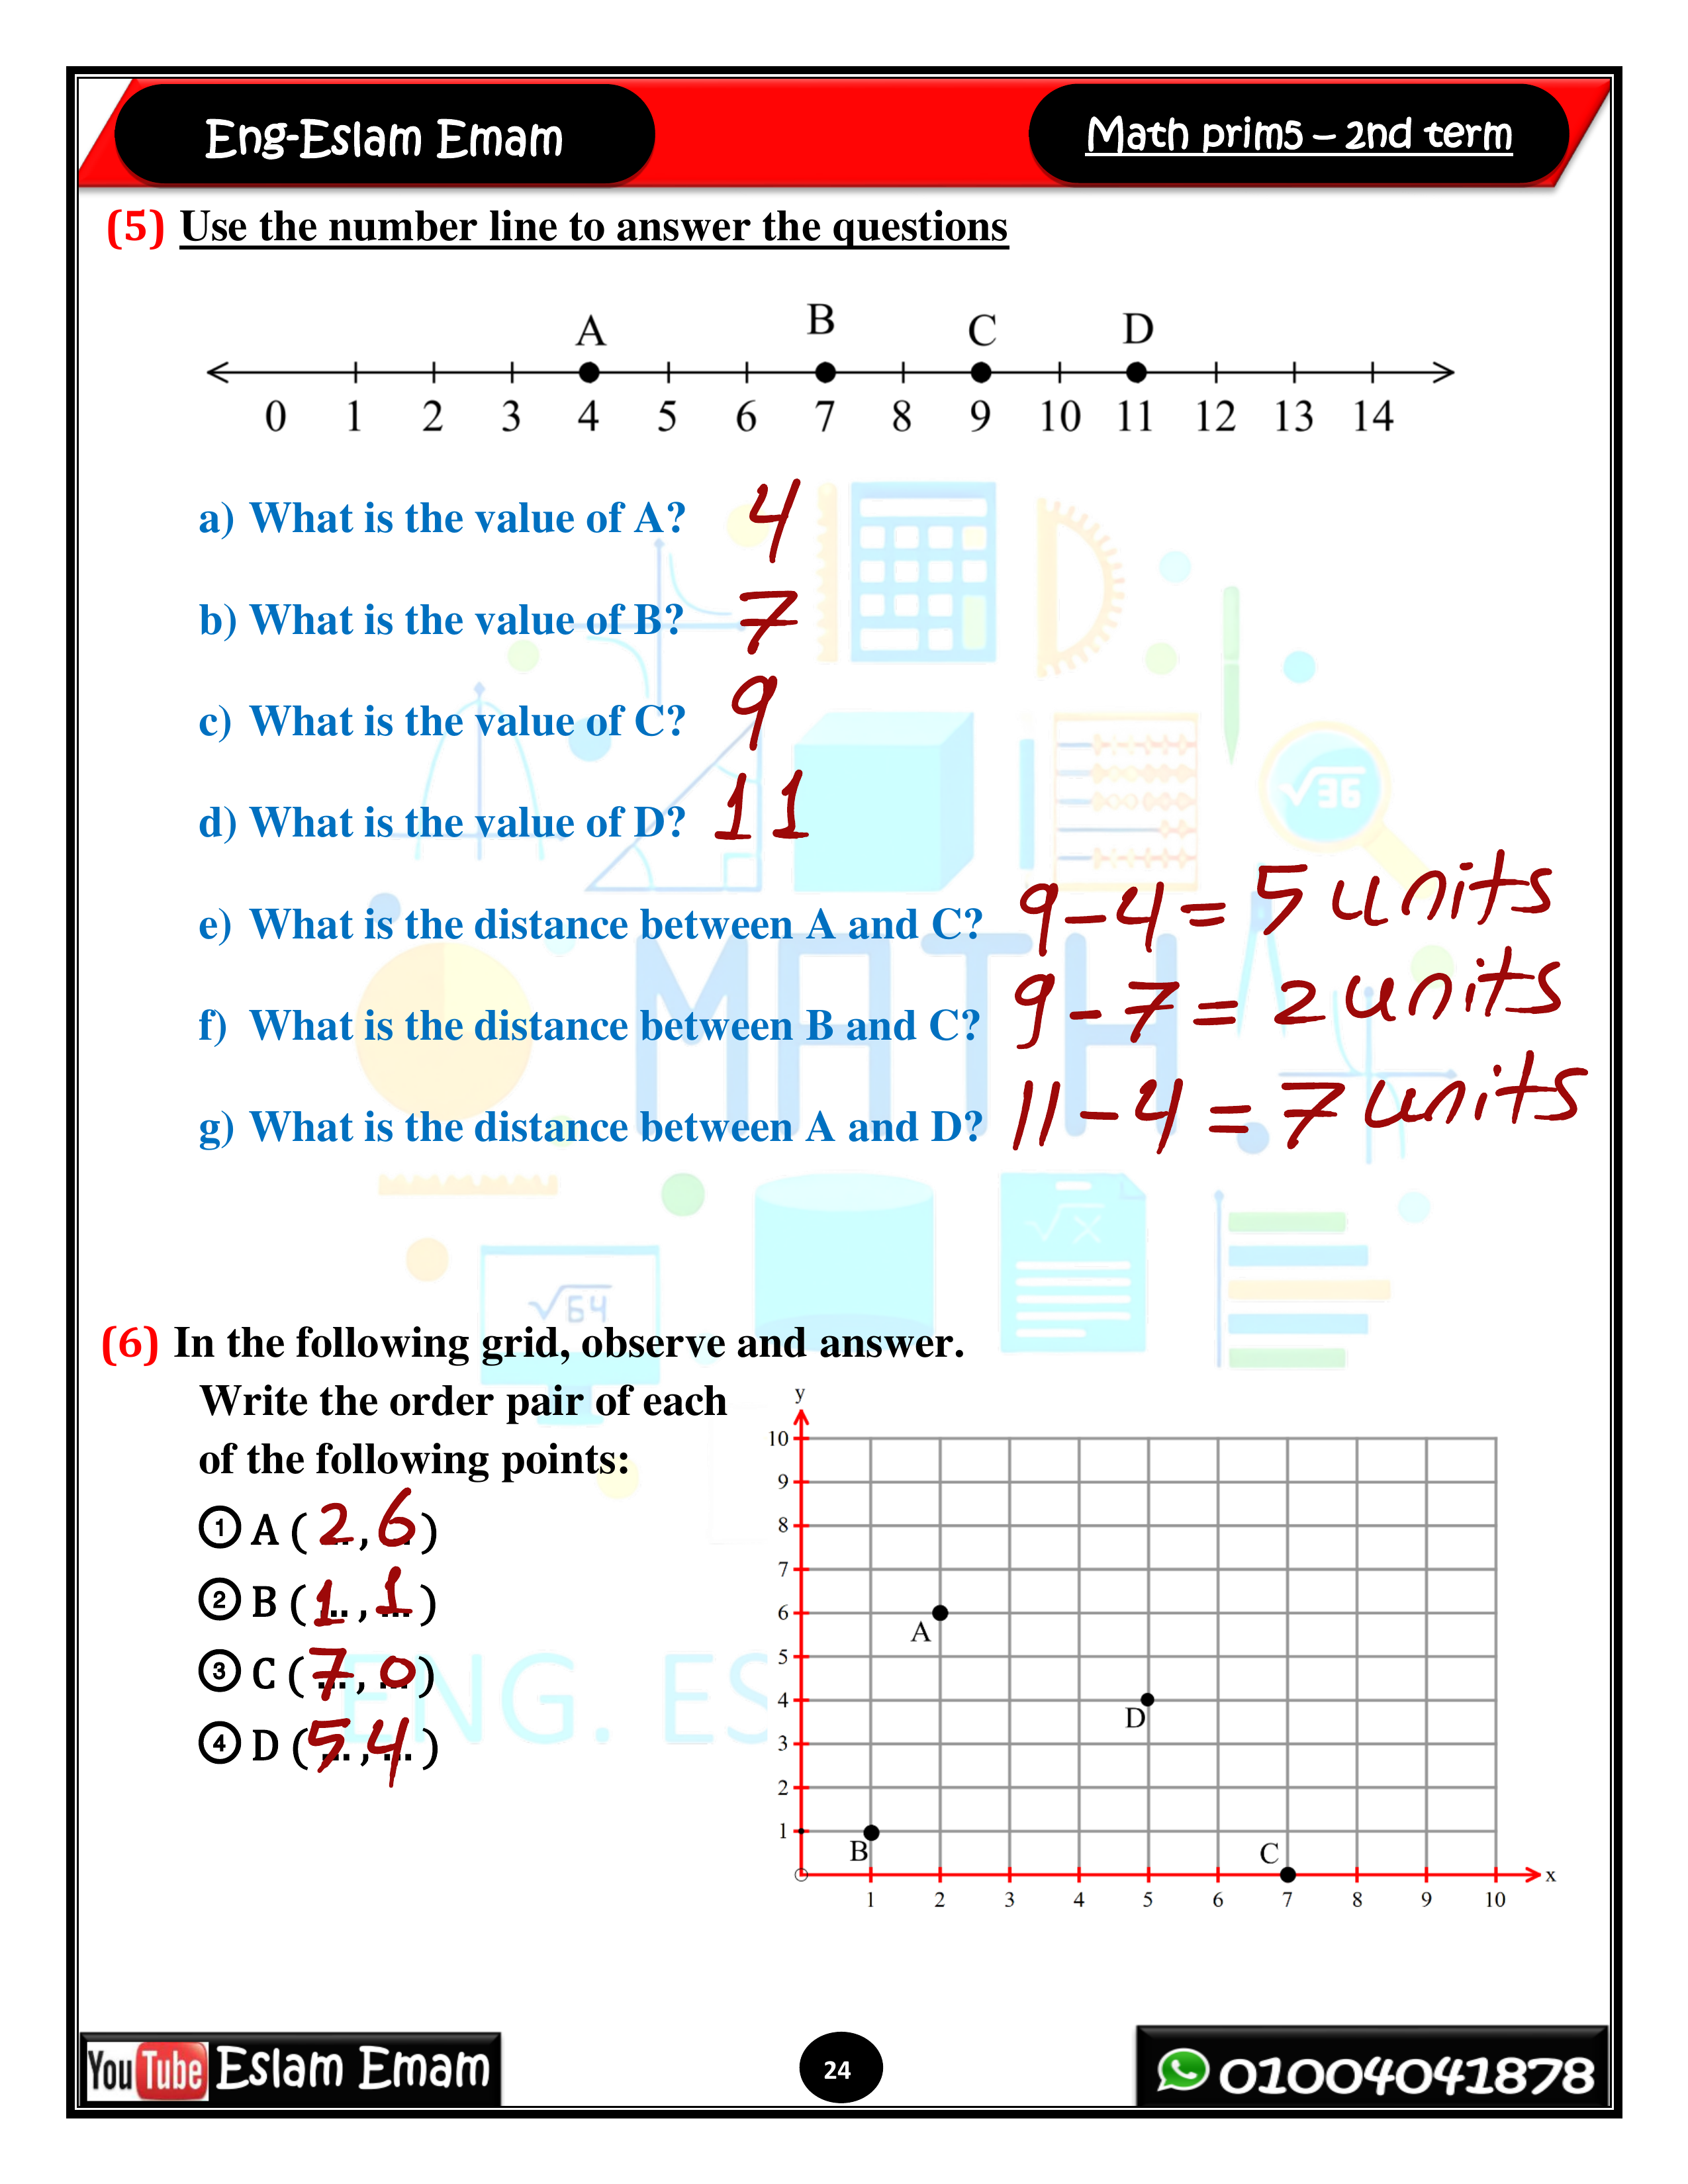 Eng-Eslam Emam
Math prim5 – 2nd term
(5) Use the number line to answer the questions
A B C D
0 1 2 3 4 5 6 7 8 9 10 11 12 13 14
a) What is the value of A? 4
b) What is the value of B? 7
c) What is the value of C? 9
d) What is the value of D? 11
e) What is the distance between A and C? 9-4= 5 units
f) What is the distance between B and C? 9-7= 2 units
g) What is the distance between A and D? 11-4= 7 units
√36
MATH
√x
√64
(6) In the following grid, observe and answer.
Write the order pair of each
of the following points:
① A ( 2 , 6 )
② B ( 1 , 1 )
③ C ( 7 , 0 )
④ D ( 5 , 4 )
ENG. ES
y
10
9
8
7
6
A
5
4
D
3
2
1
B
C
x
1 2 3 4 5 6 7 8 9 10
YouTube Eslam Emam
24
01004041878